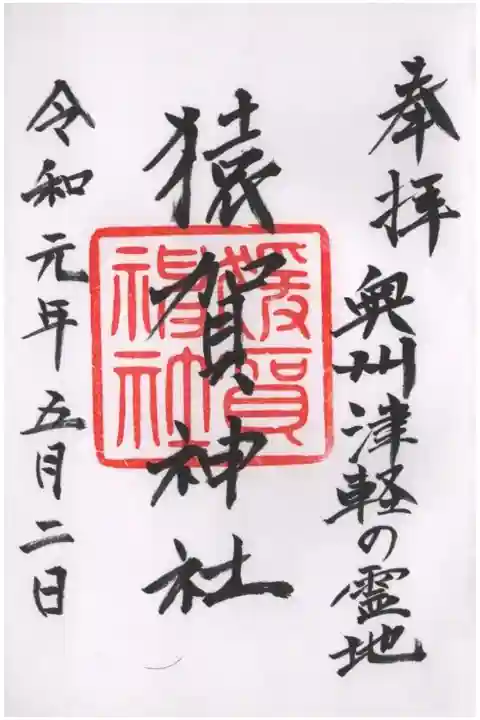 奉拝
奥州津軽の霊地
猿賀神社
猿賀神社
令和元年五月二日